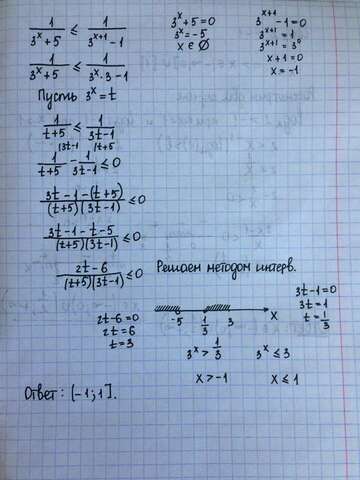 1/(3^x+5) ≤ 1/(3^(x+1)-1)
3^x+5=0
3^x=-5
x∈∅
3^(x+1)-1=0
3^(x+1)=1
3^(x+1)=3^0
x+1=0
x=-1
1/(3^x+5) ≤ 1/(3^x·3-1)
Пусть 3^x=t
1/(t+5) ≤ 1/(3t-1)
|3t-1 |t+5
1/(t+5) - 1/(3t-1) ≤ 0
(3t-1-(t+5))/((t+5)(3t-1)) ≤ 0
(3t-1-t-5)/((t+5)(3t-1)) ≤ 0
(2t-6)/((t+5)(3t-1)) ≤ 0
Решаем методом интерв.
2t-6=0
2t=6
t=3
-5 1/3 3 x
3t-1=0
3t=1
t=1/3
3^x > 1/3 3^x ≤ 3
x>-1 x≤1
Ответ: (-1;1].